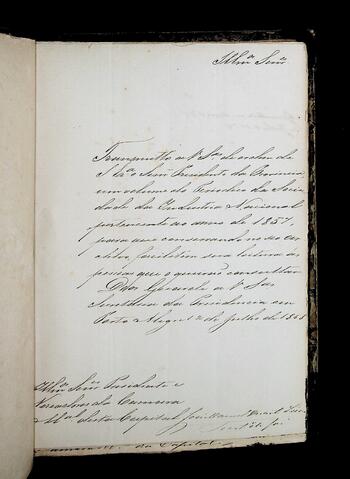 Illmo Senr
Transmitto a V Sa de ordem de
S Exa o Senr Presidente da Provincia
um volume do Periodico da Socie
dade da Industria Nacional
pertencente ao anno de 1857,
para que conservando no seu ar
chivo, facilitem sua leitura ás
pessoas que o queirão consultar.
Deos Guarde a V Sas
Secretaria da Presidencia em
Porto Alegre 2 de Julho de 1858
Illmos Senrs Presidente e
Vereadores da Camara
Mal desta Capital
Capital